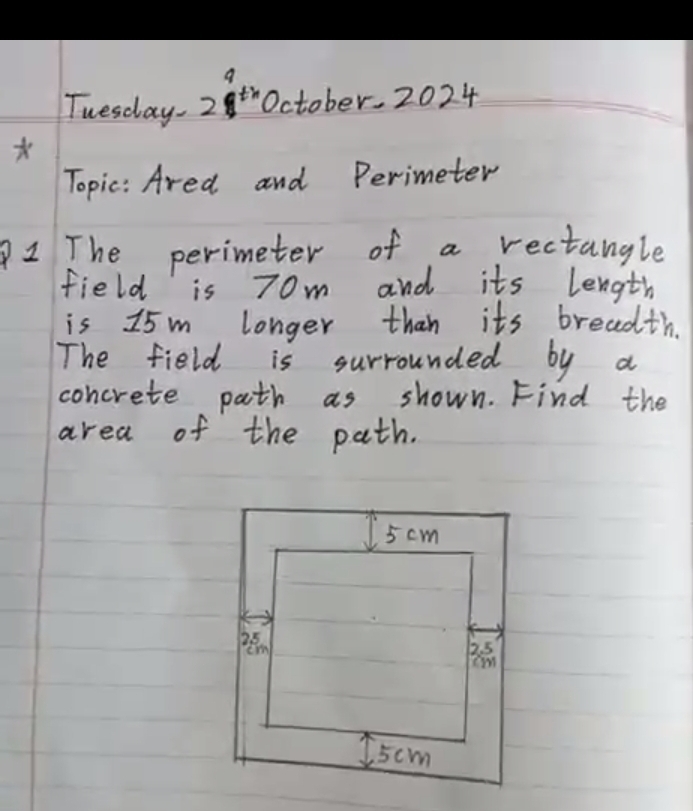 Tuesday. 29th October. 2024
Topic: Area and Perimeter
Q1 The perimeter of a rectangle
field is 70m and its length
is 15m longer than its breadth.
The field is surrounded by a
concrete path as shown. Find the
area of the path.
5 cm
2.5 cm
2.5 cm
5cm